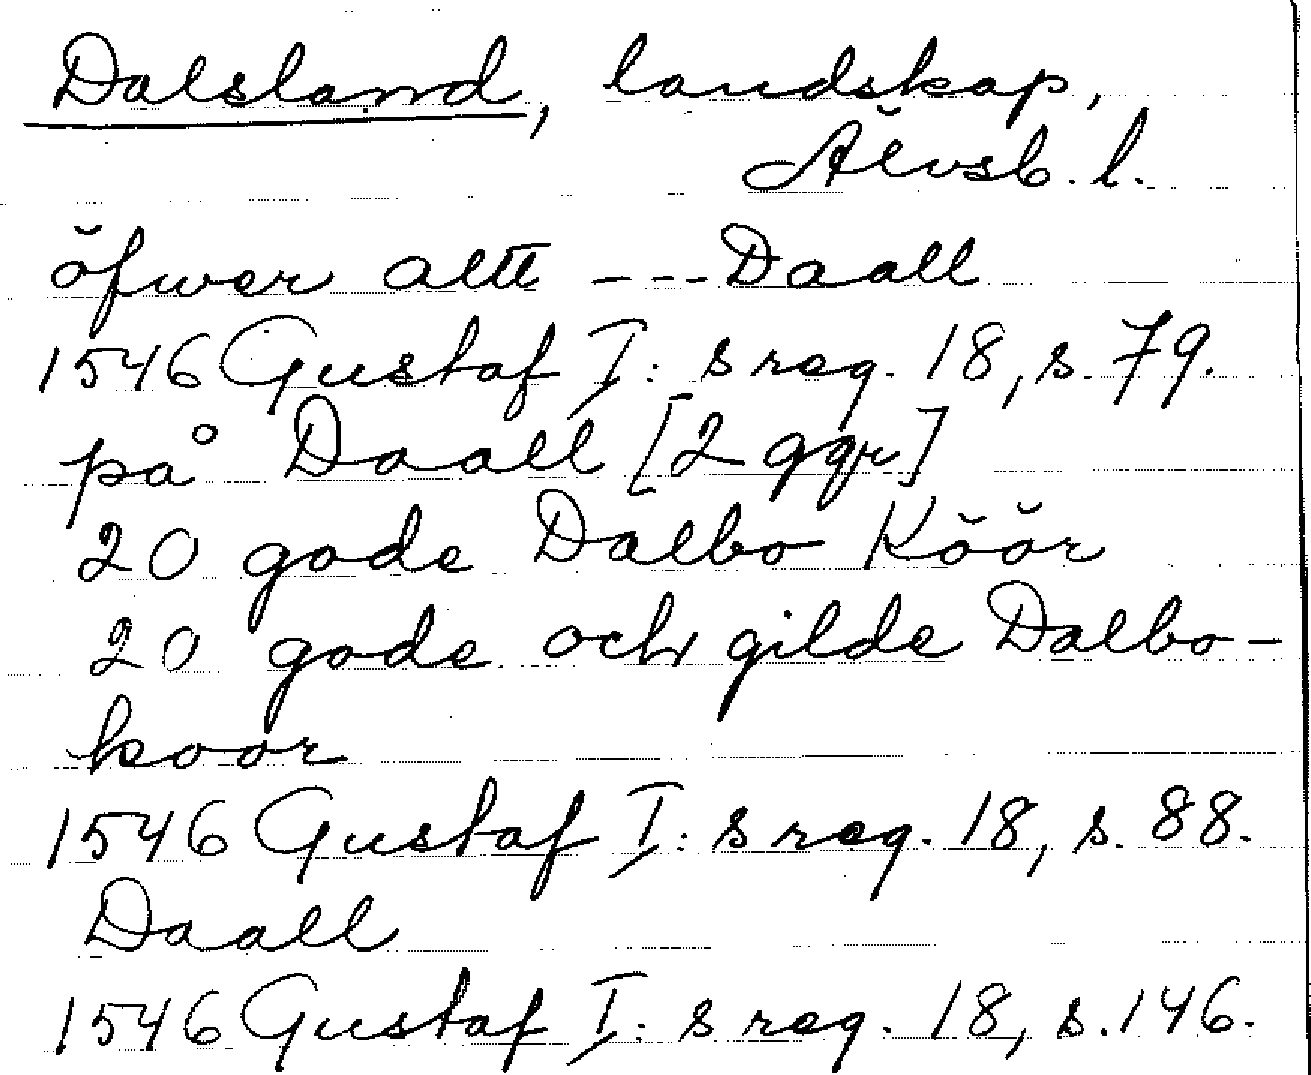 Dalsland, landskap,
Älvsb. l.
öfwer altt --- Daall
1546 Gustaf I:s reg. 18, s. 79.
på Daall [2 ggr]
20 gode Dalbo Köör
20 gode och gilde Dalbo-
koor
1546 Gustaf I:s reg. 18, s. 88.
Daall
1546 Gustaf I:s reg. 18, s. 146.